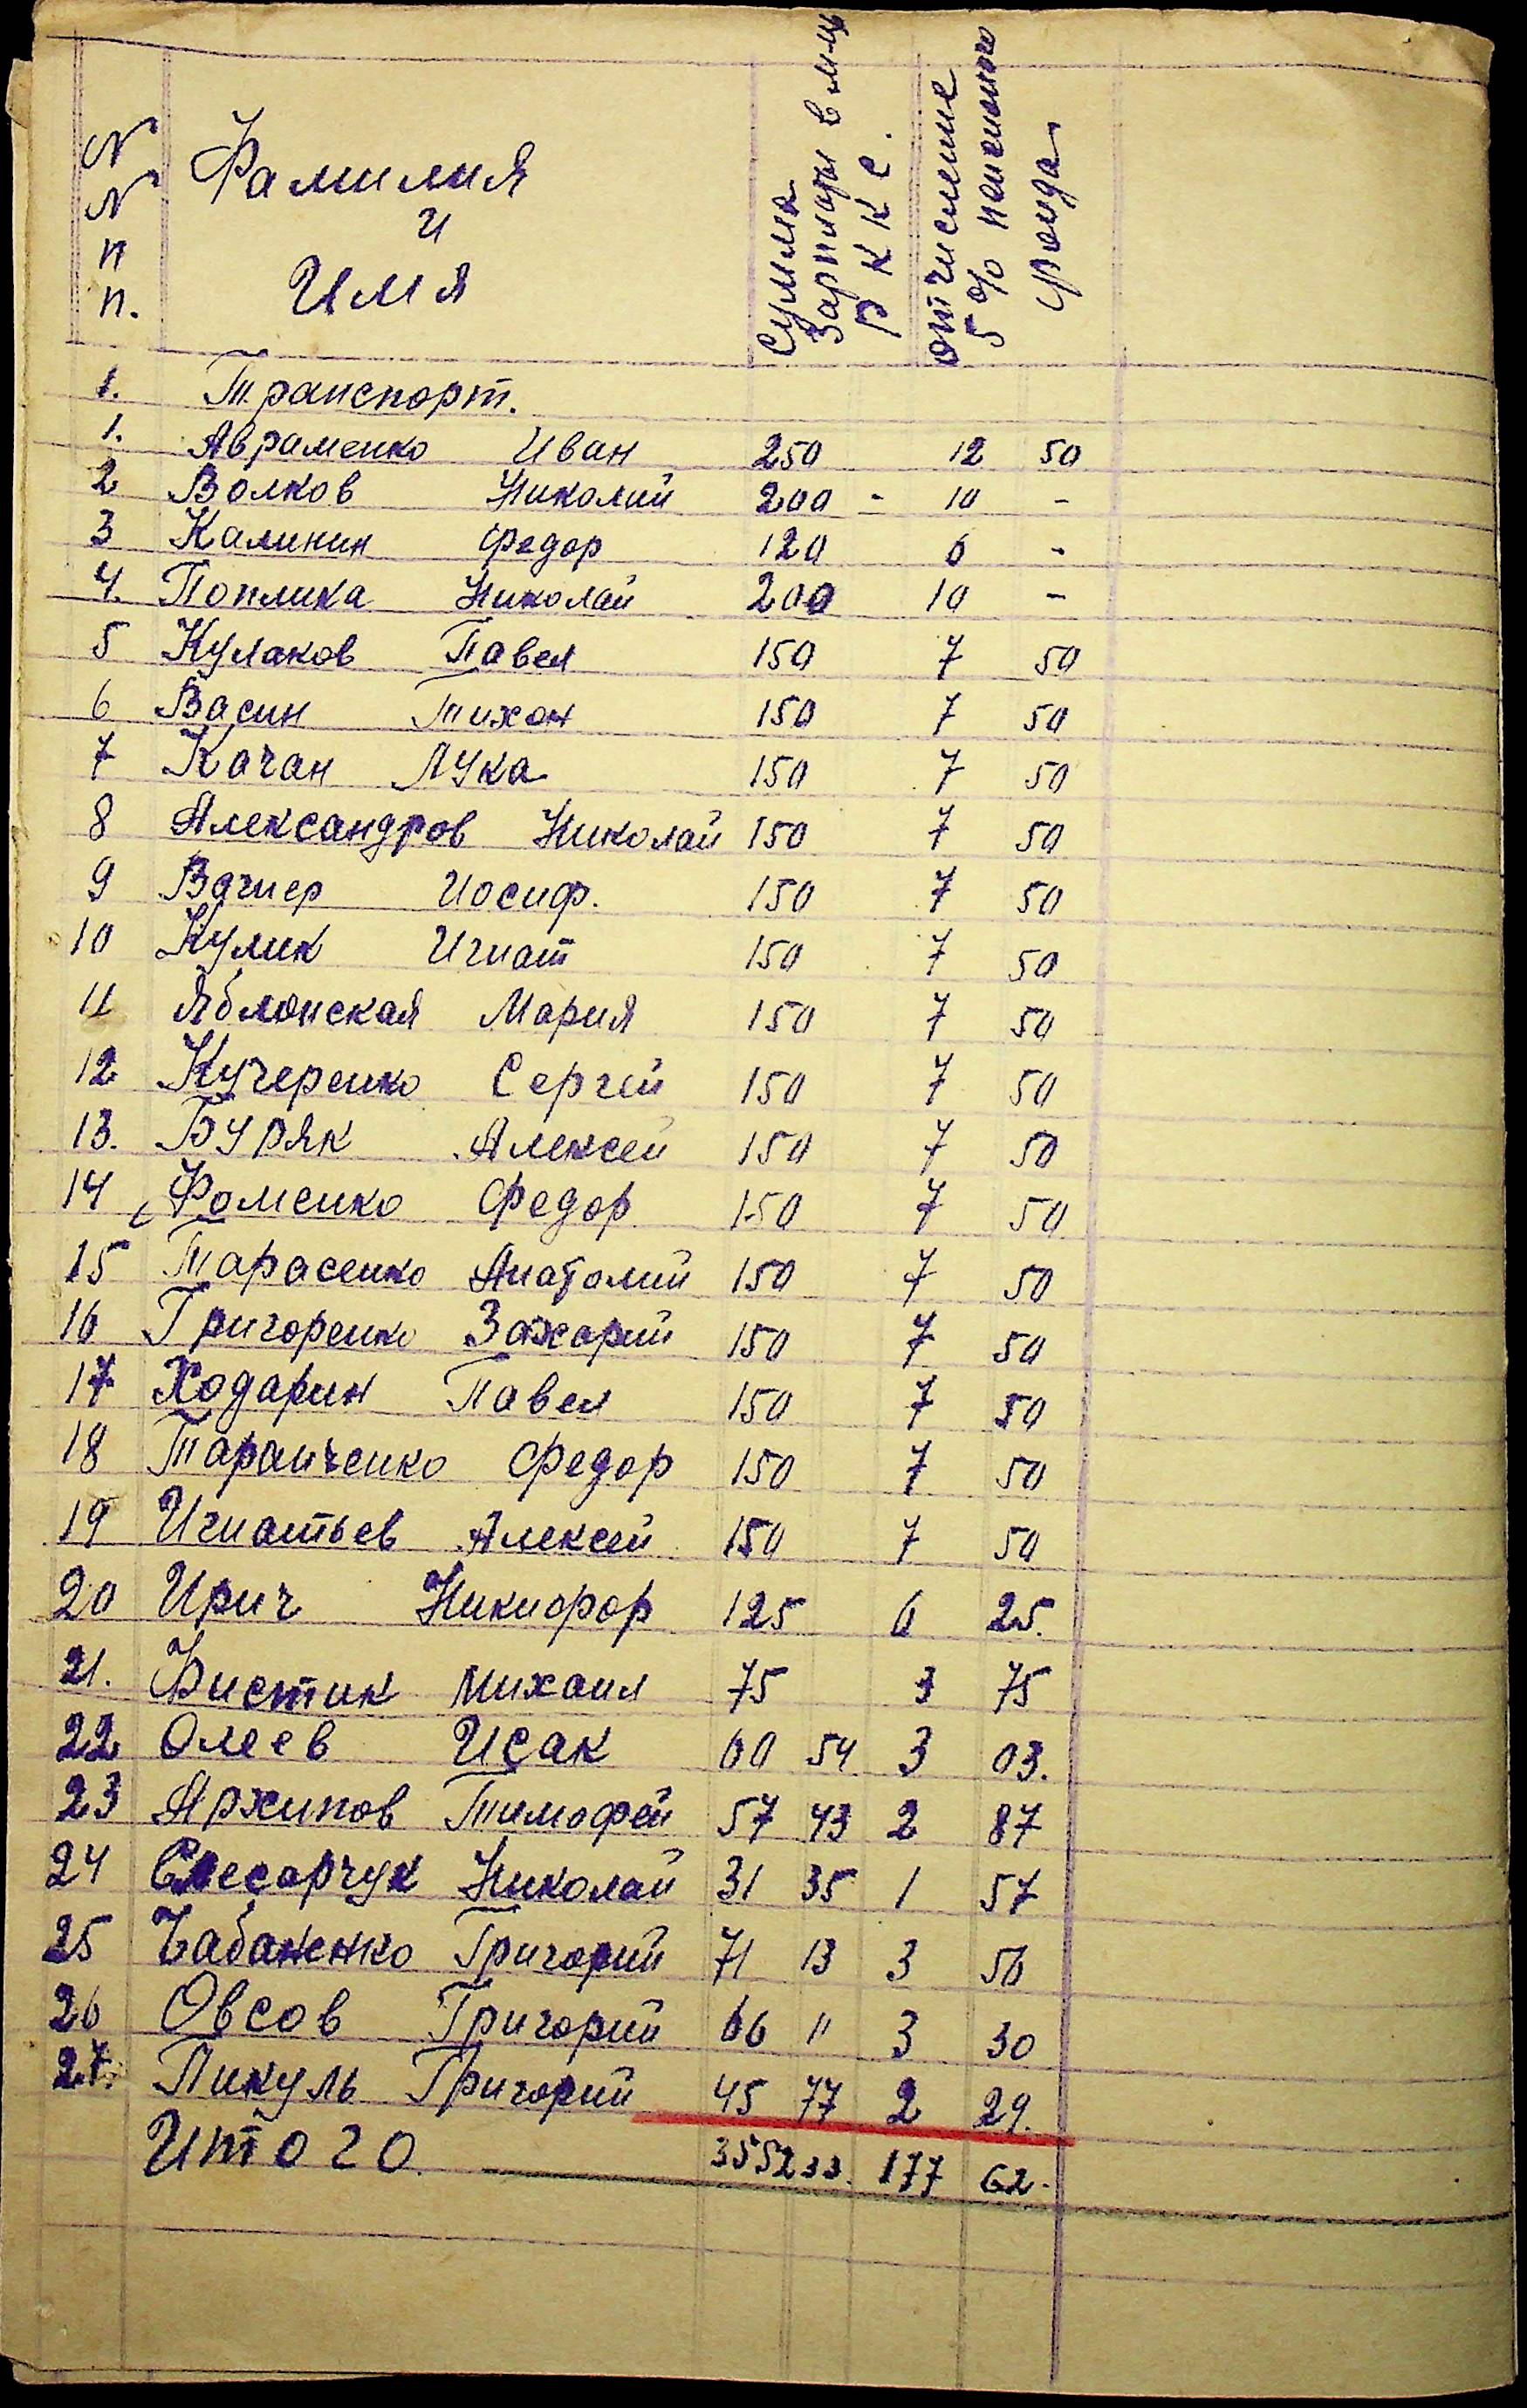 N N п п.
Фамилия
и
Имя
Сумма
Зарплаты в м-ць
РККС.
Отчисление
5% пенсионого
фонда
1. Транспорт.
1. Авраменко Иван 250 12 50
2 Волков Николай 200 - 10 -
3 Калинин Федор 120 6 -
4. Поплика Николай 200 10 -
5 Кулаков Павел 150 7 50
6 Васин Тихон 150 7 50
7 Качан Лука 150 7 50
8 Александров Николай 150 7 50
9 Вагнер Иосиф. 150 7 50
10 Кулик Игнат 150 7 50
11 Яблонская Мария 150 7 50
12 Кучеренко Сергей 150 7 50
13. Буряк Алексей 150 7 50
14 Фоменко Федор 150 7 50
15 Тарасенко Анатолий 150 7 50
16 Григоренко Захарий 150 7 50
17 Ходарин Павел 150 7 50
18 Таранченко Федор 150 7 50
19 Игнатьев Алексей 150 7 50
20 Ирич Никифор 125 6 25.
21. Фистик Михаил 75 3 75
22 Олеев Исак 60 54 3 03.
23 Архипов Тимофей 57 43 2 87
24 Слесарчук Николай 31 35 1 57
25 Чабаненко Григорий 71 13 3 56
26 Овсов Григорий 66 11 3 30
27. Пикуль Григорий 45 77 2 29.
Итого. 3552 33. 177 62.